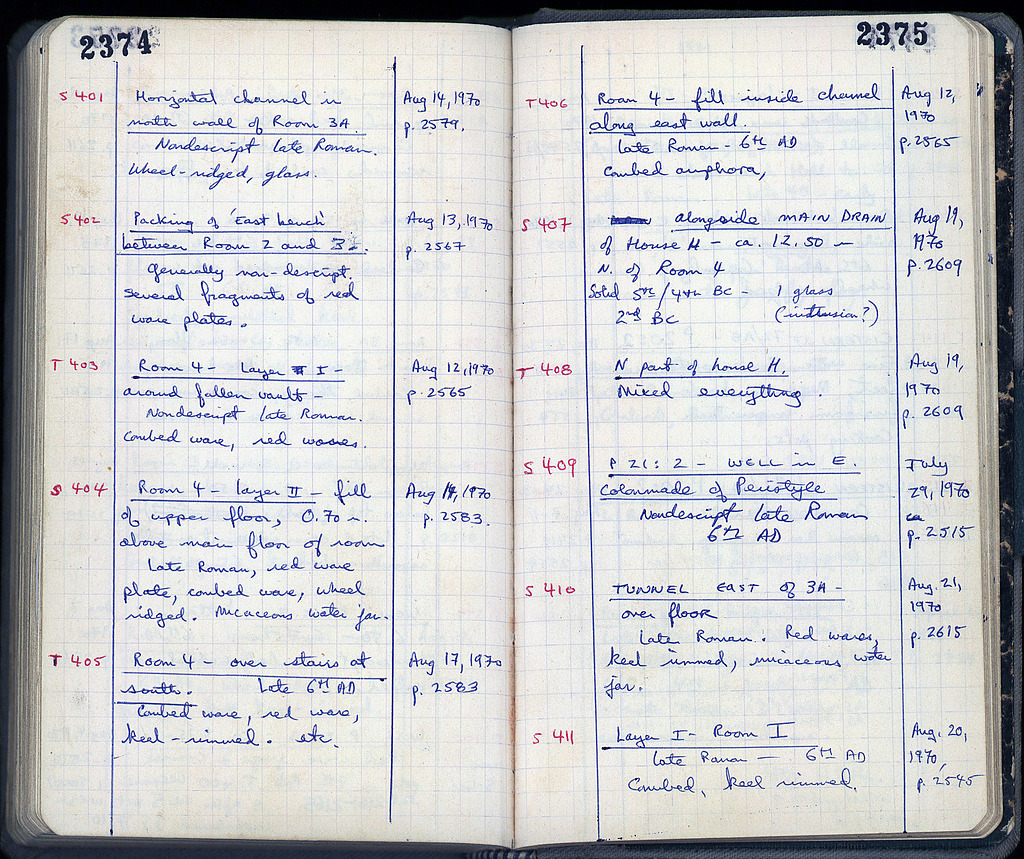 2374
S 401 Horizontal channel in Aug 14, 1970
north wall of Room 3A. p. 2579.
Nondescript late Roman.
Wheel-ridged, glass.
S 402 Packing of 'East bench' Aug 13, 1970
between Room 2 and 3 p. 2567
generally non-descript.
several fragments of red
ware plates.
T 403 Room 4 - Layer I - Aug 12, 1970
around fallen vault - p. 2565
Nondescript late Roman.
Combed ware, red wares.
S 404 Room 4 - layer II - fill Aug 14, 1970
of upper floor, 0.70 m. p. 2583.
above main floor of room
Late Roman, red ware
plate, combed ware, wheel
ridged. Micaceous water jar.
T 405 Room 4 - over stairs at Aug 17, 1970
south. Late 6th AD p. 2583
Combed ware, red ware,
keel-rimmed. etc.
2375
T 406 Room 4 - fill inside channel Aug 12,
along east wall. 1970
late Roman - 6th AD p. 2565
Combed amphora,
S 407 alongside MAIN DRAIN Aug 19,
of House H - ca. 12.50 m 1970
N. of Room 4 p. 2609
Solid 5th/4th BC - 1 glass
2nd BC (intrusion?)
T 408 N part of house H. Aug 19,
Mixed everything. 1970
p. 2609
S 409 P 21:2 - WELL in E. July
Colonnade of Peristyle 29, 1970
Nondescript late Roman ca
6th AD p. 2515
S 410 TUNNEL EAST of 3A - Aug. 21,
over floor 1970
Late Roman. Red wares, p. 2615
keel rimmed, micaceous water
jar.
S 411 Layer I - Room I Aug. 20,
late Roman — 6th AD 1970,
Combed, keel rimmed. p. 2545